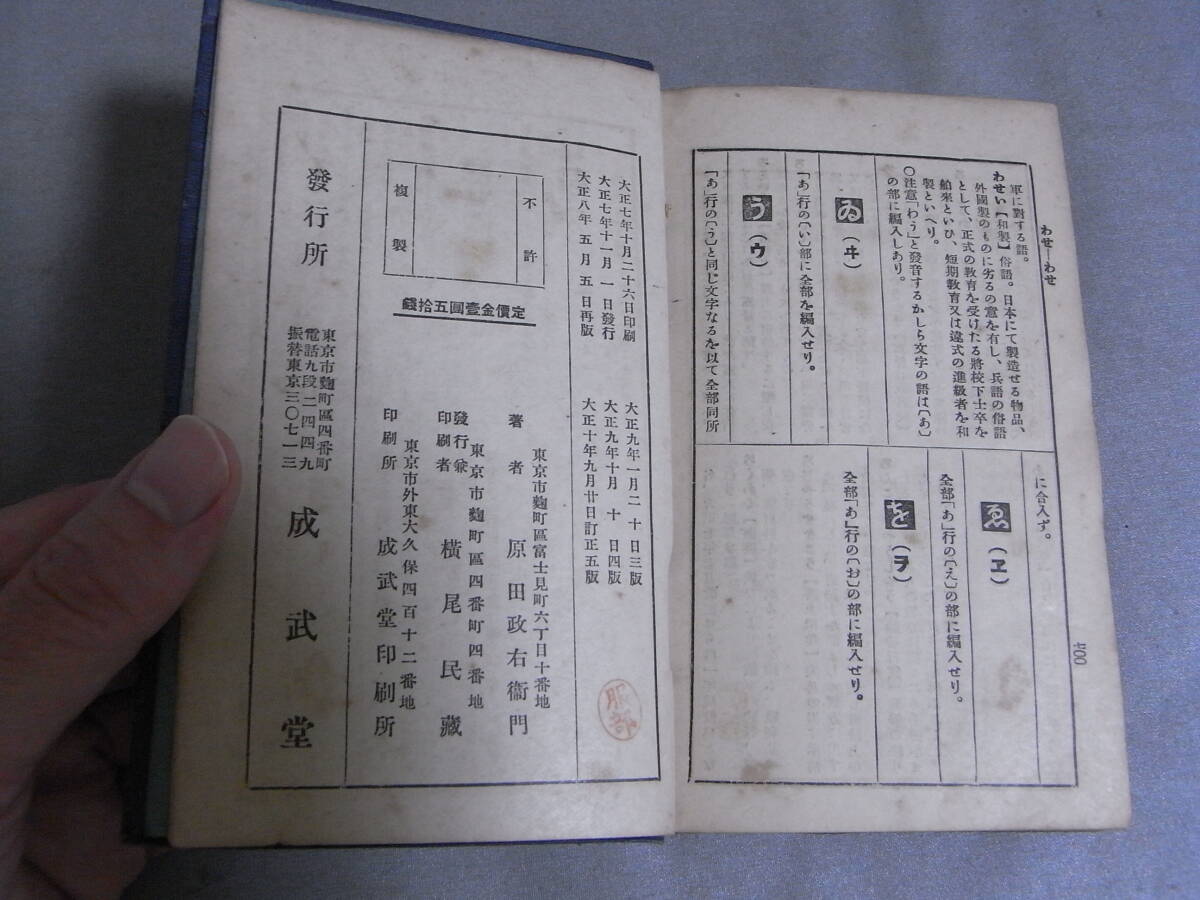 わせ―わせ
軍に對する語。
わせい【和製】俗語。日本にて製造せる物品、
外國製のものに劣るの意を有し、兵語の俗語
として、正式の敎育を受けたる將校下士卒を
舶來といひ、短期敎育又は違式の進級者を和
製といへり。
○注意「わう」と發音するかしら文字の語は〔あ〕
の部に編入しあり。
ゐ(ヰ)
「あ」行の〔い〕部に全部を編入せり。
う(ウ)
「あ」行の〔う〕と同じ文字なるを以て全部同所
に合入す。
ゑ(ヱ)
全部「あ」行の〔え〕の部に編入せり。
を(ヲ)
全部「あ」行の〔お〕の部に編入せり。
400
大正七年十月二十六日印刷
大正七年十一月一日發行
大正八年五月五日再版
大正九年一月二十日三版
大正九年十月十日四版
大正十年九月廿日訂正五版
不許
複製
定價金壹圓五拾錢
東京市麴町區富士見町六丁目十番地
著者 原田政右衞門
東京市麴町區四番町四番地
發行兼
印刷者 橫尾民藏
東京市外東大久保四百十二番地
印刷所 成武堂印刷所
發行所
東京市麴町區四番町
電話九段二四四九
振替東京三〇七一三
成武堂
服部